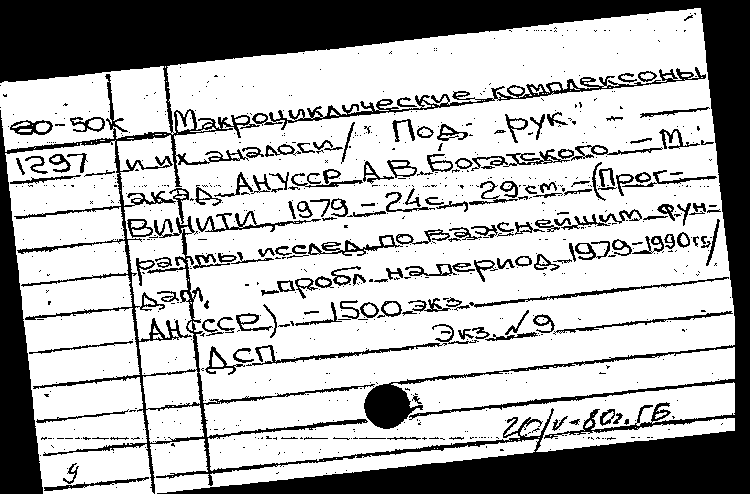 80-50К Макроциклические комплексоны
1297 и их аналоги / Под. рук. -
акад. АН УССР А.В. Богатского. - М.:
ВИНИТИ, 1979. - 24 с.; 29 см. - (Прог-
раммы исслед. по важнейшим фун-
дам. пробл. на период 1979-1990 гг. /
АН СССР). - 1500 экз.
ДСП Экз. № 9
20/V-80г. ГБ
9